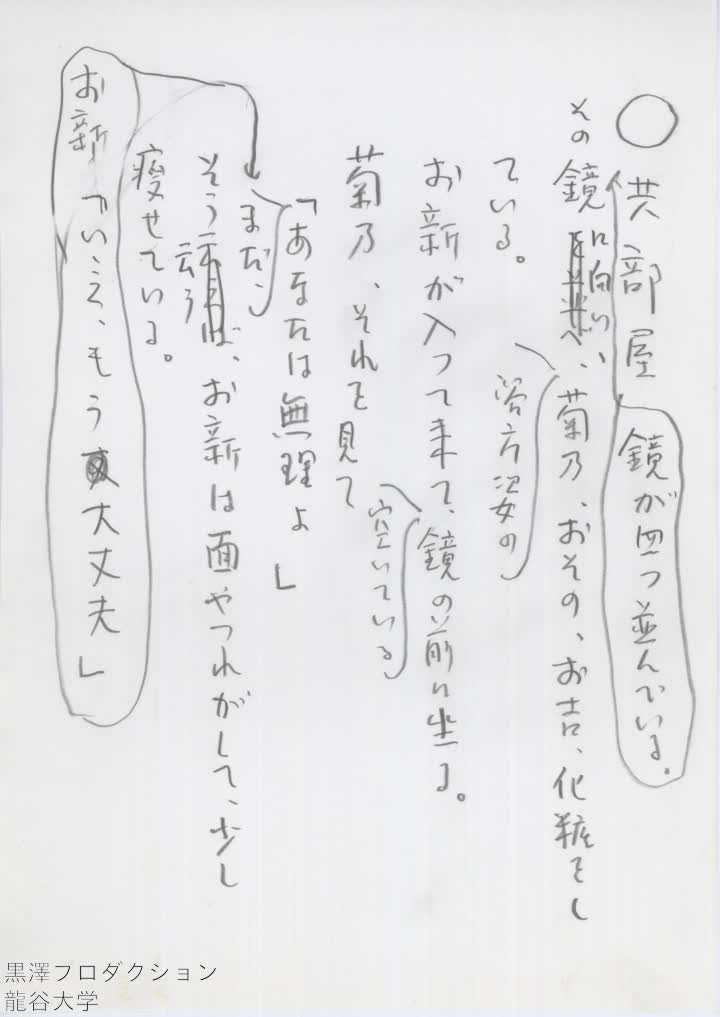 ○ 共部屋
鏡が四つ並んでいる。
その鏡に向い、浴衣姿の菊乃、おその、お吉、化粧をし
ている。
お新が入って来て、空いている鏡の前に坐る。
菊乃、それを見て
「あなたはまだ、無理よ」
そう云う、お新は面やつれがして、少し
瘦せている。
お新「いゝえ、もう大丈夫」
黒澤プロダクション
龍谷大学